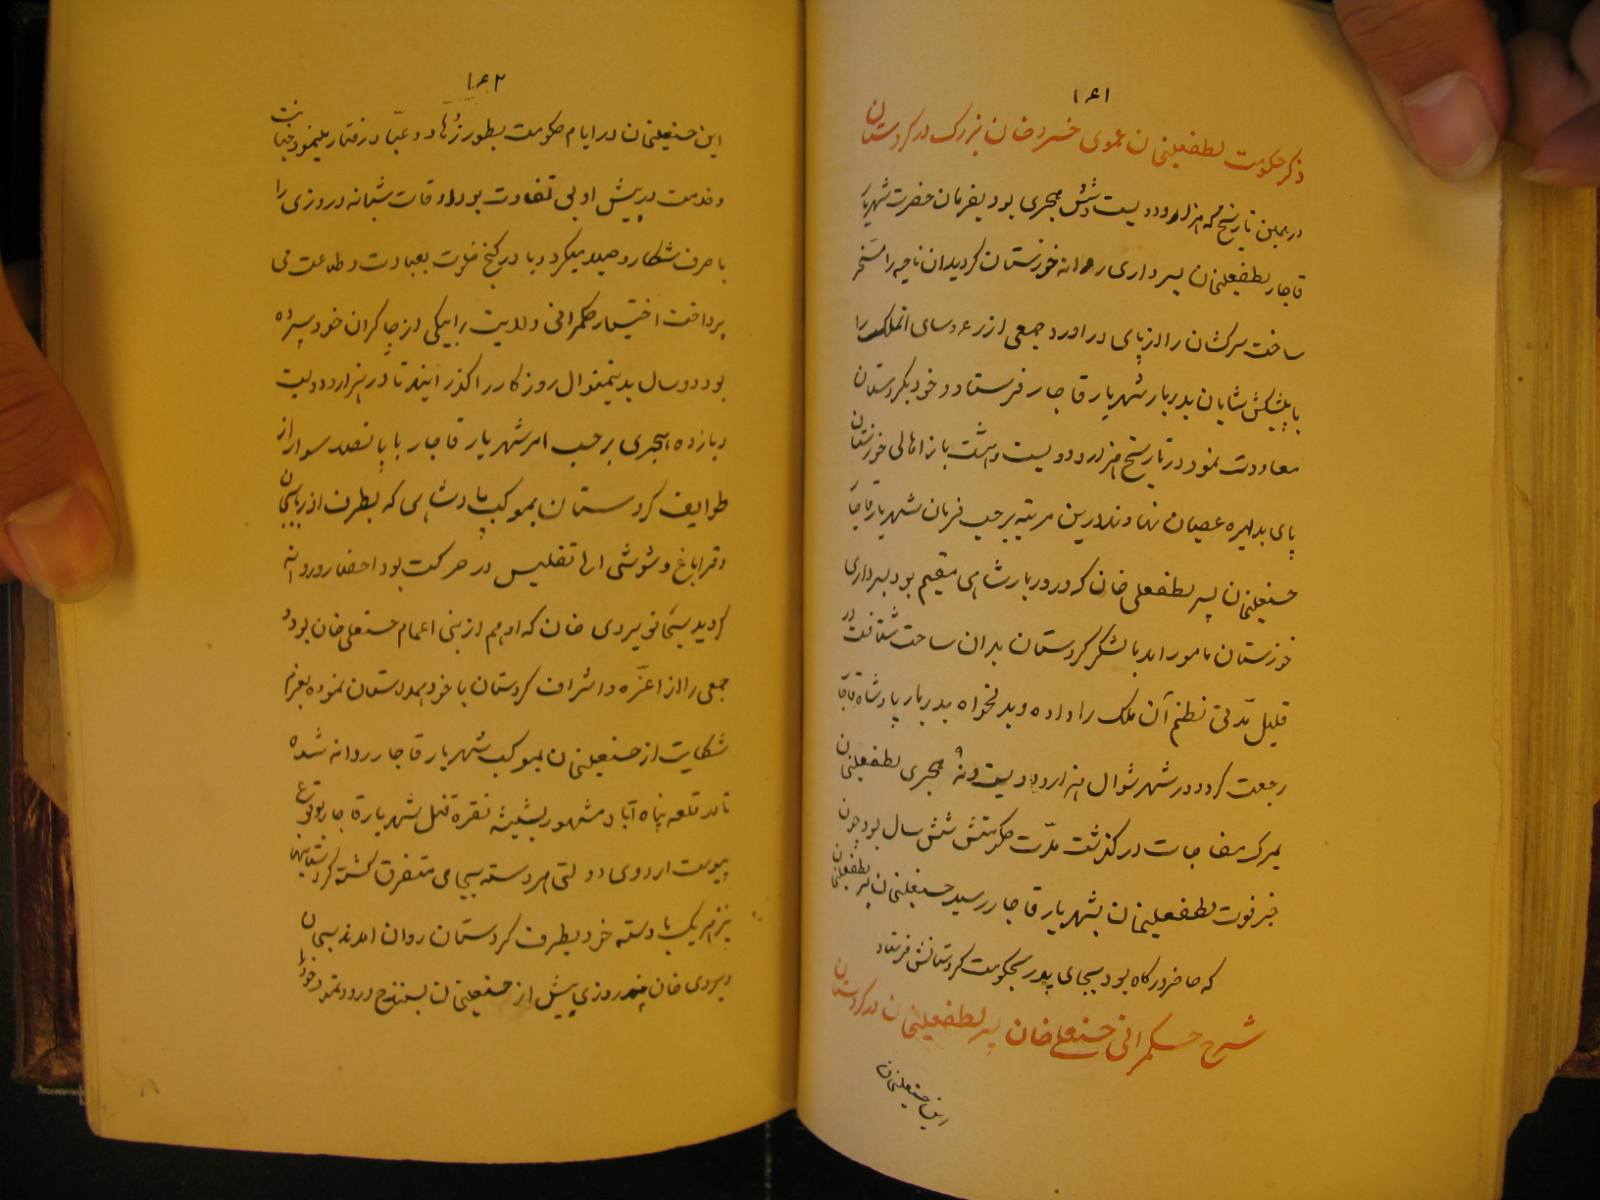 ۱۶۱
ذکر حکومت لطفعلیخان عموی خسروخان بزرگ در کردستان
در همین تاریخ که هزار و دویست و شش هجری بود بفرمان حضرت شهریار
قاجار لطفعلیخان بسرداری روانه خوزستان گردید ان ناحیه را مسخر
ساخت سرکشان را از پای در اورد جمعی از رءوسای انملک را
با پیشکش شایان بدربار شهریار قاجار فرستاد و خود بکردستان
معاودت نمود در تاریخ هزار و دویست و هشت باز اهالی خوزستان
پای بدایره عصیان نهادند درین مرتبه برحسب فرمان شهریار قاجار
حسنعلیخان پسر لطفعلی خان که در دربار شاهی مقیم بود بسرداری
خوزستان مامور امد با لشکر کردستان بدان ساحت شتافت در
قلیل مدتی نظم آن ملک را داده و بدلخواه بدربار پادشاه قاجار
رجعت کرد و در شهر شوال هزار و دویست و نه هجری لطفعلیخان
بمرک مفاجات در گذشت مدت حکومتش شش سال بود چون
خبر فوت لطفعلیخان بشهریار قاجار رسید حسنعلیخان پسر لطفعلیخان
که حاضر درگاه بود بجای پدر بحکومت کردستانش فرستاد
شرح حکمرانی حسنعلی خان پسر لطفعلیخان در کردستان
این حسنعلیخان
۱۶۲
این حسنعلیخان در ایام حکومت بطور زهاد و عباد رفتار مینمود خیانت
و خدمت در پیش او بی تفاوت بود اوقات شبانه روزی را
با صرف شکار و صید میکرد و یا در کنج خلوت بعبادت و طاعت می
پرداخت اختیار حکمرانی ولایت را بیکی از چاکران خود سپرده
بود دو سال بدینمنوال روزگار را گذرانید تا در هزار و دویست
و یازده هجری برحسب امر شهریار قاجار با پانصد سوار از
طوایف کردستان بموکب پادشاهی که بطرف اذربایجان
و قراباغ و شوشی الی تفلیس در حرکت بود احضار و روانه
گردید سبحانویردی خان که او هم از بنی اعمام حسنعلی خان بود
جمعی را از اعزه و اشراف کردستان با خود همدستان نموده بعزم
شکایت از حسنعلیخان بموکب شهریار قاجار روانه شده
تا در قلعه پناه آباد مشهور بشیشه نقره قتل شهریار قاجار بوقوع
پیوست اردوی دولتی هر دسته بجای متفرق گشته کردستانیها
نیز هر یک با دسته خود بطرف کردستان روان امدند سبحان
ویردی خان چند روزی پیش از حسنعلیخان بسنندج ورود نمود خود را